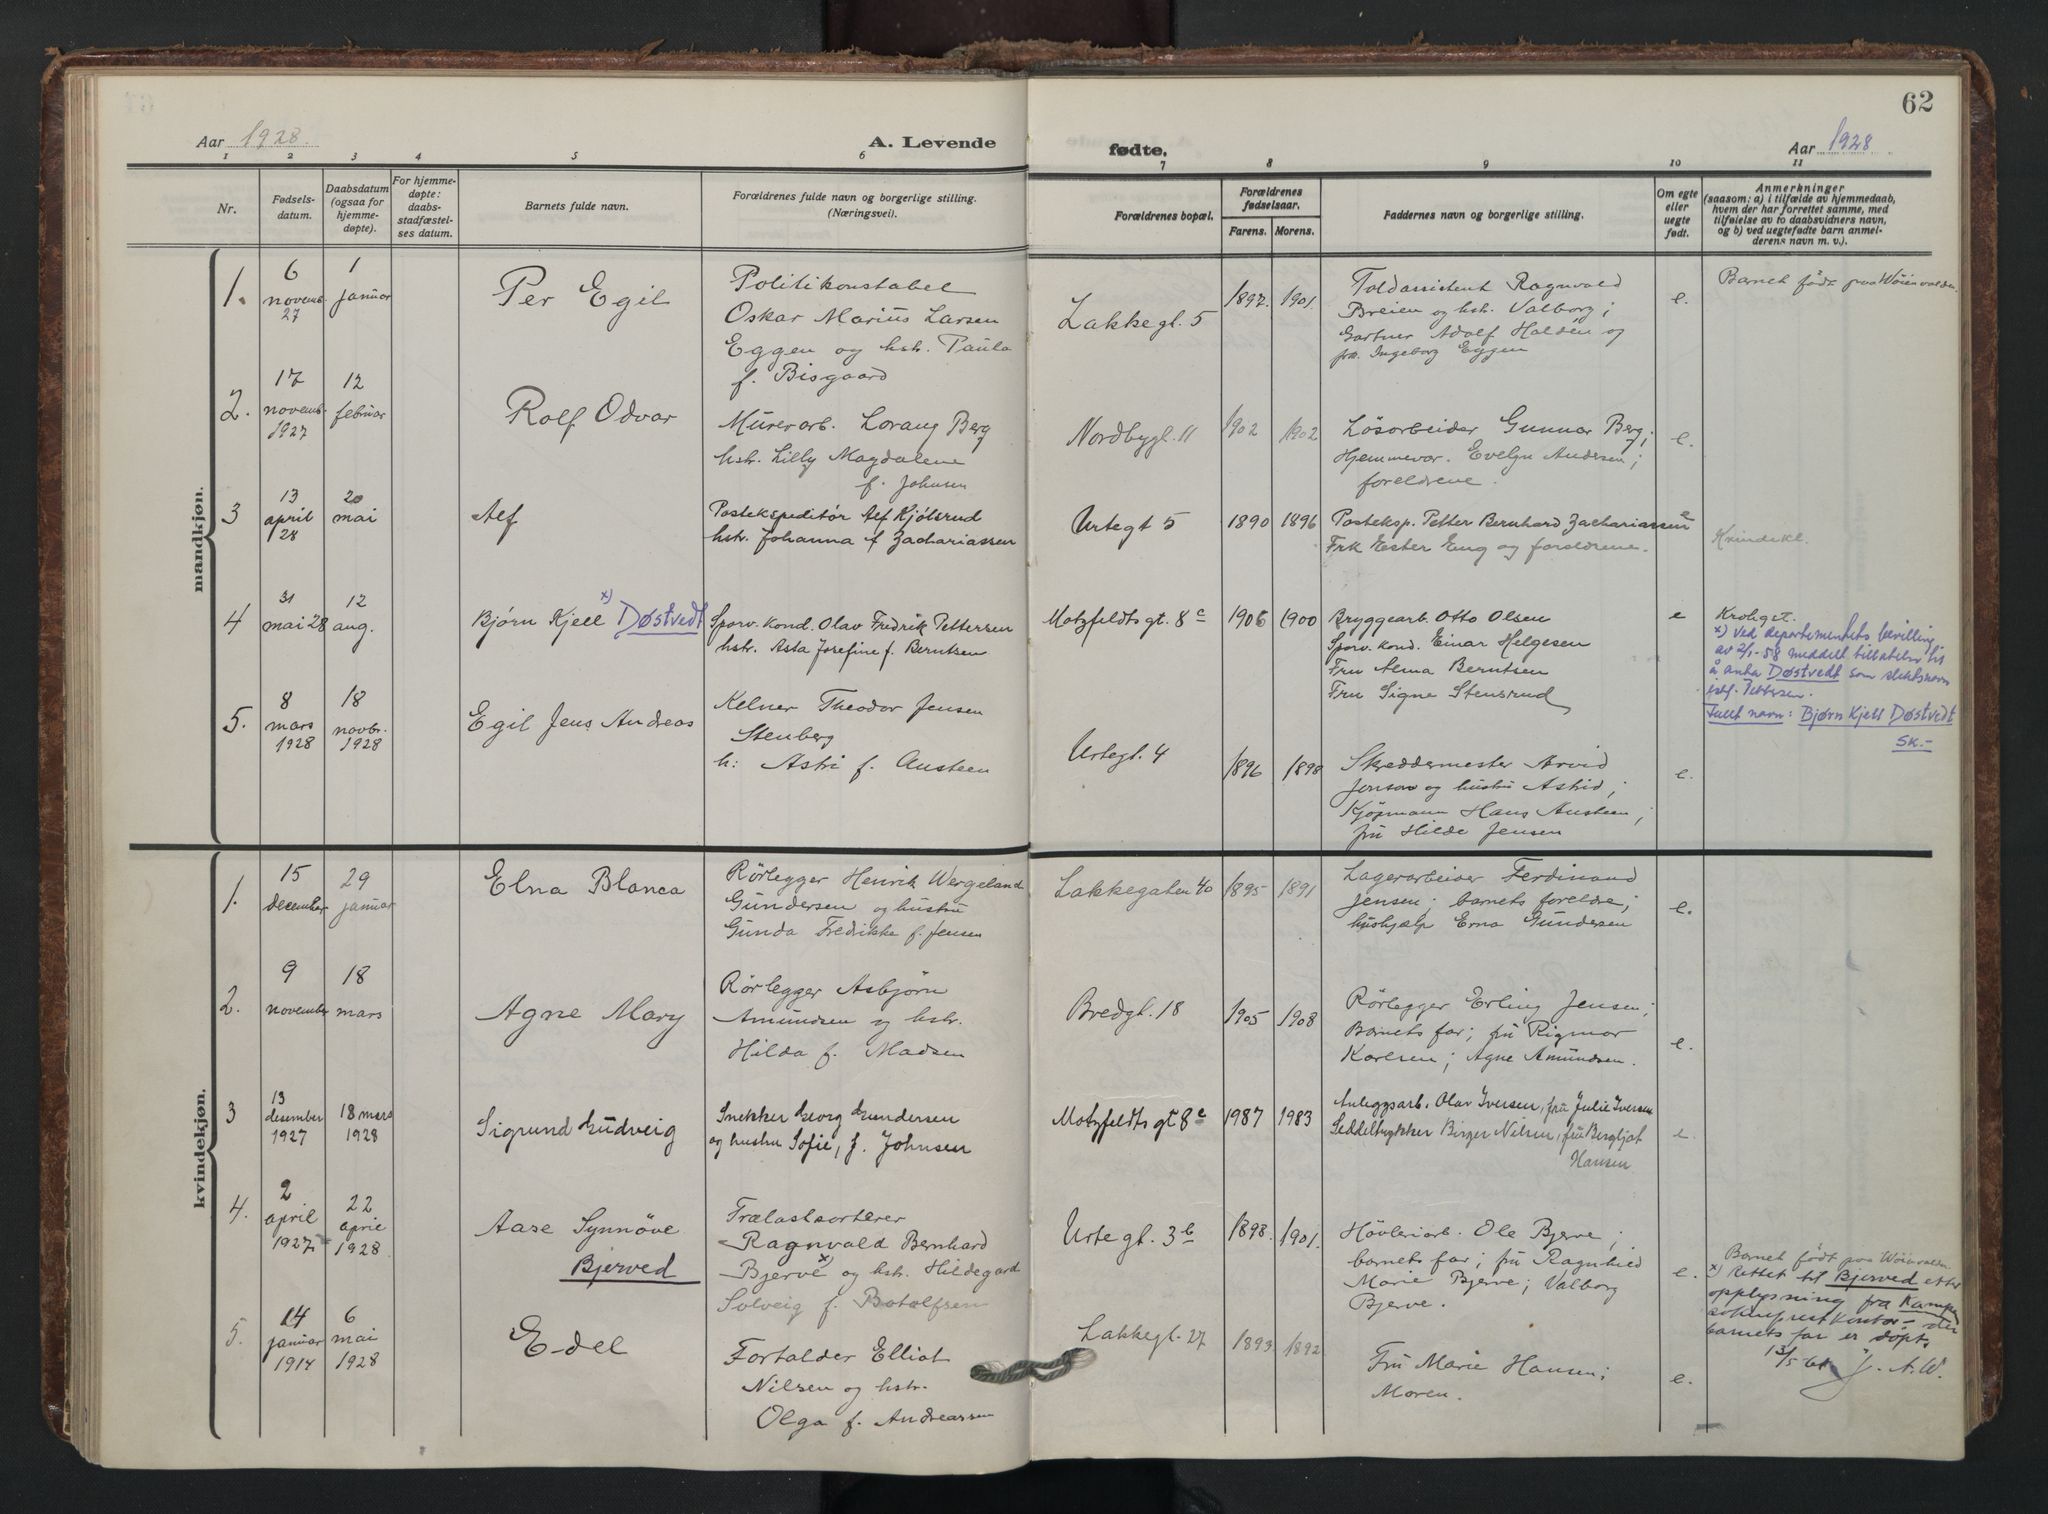 62
Aar 1928.
A. Levende
fødte.
Aar 1928
1 2 3 4 5 6 7 8 9 10 11
Nr.
Fødsels-
datum.
Daabsdatum
(ogsaa for
hjemme-
døpte).
For hjemme-
døpte:
daabs-
stadfæstel-
ses datum.
Barnets fulde navn.
Forældrenes fulde navn og borgerlige stilling.
(Næringsvei).
Forældrenes bopæl.
Forældrenes
fødselsaar.
Farens. Morens.
Faddernes navn og borgerlige stilling.
Om egte
eller
uegte
født.
Anmerkninger
(saasom: a) i tilfælde av hjemmedaab,
hvem der har forrettet samme, med
tilføielse av to daabsvidners navn,
og b) ved uegtefødte barn anmel-
derens navn m. v.).
mandkjøn.
1.
6
novemb.
27
1
januar
Per Egil
Politikonstabel
Oskar Marius Larsen
Eggen og hstr. Paula
f. Bisgaard
Lakkegt. 5
1897. 1901.
Toldassistent Ragnvald
Breien og hstr. Valborg;
Gartner Adolf Haldén og
frk. Ingeborg Eggen
e.
Barnet født paa Wöienvolden.
2.
17
novemb.
1927
12
februar
Rolf Odvar
Murerarb. Lorang Berg
hstr. Lilly Magdalene
f. Johnsen
Nordbygt. 11
1902 1902
Løsarbeider Gunnar Berg;
Hjemmevær. Evelyn Andersen;
foreldrene.
e.
3
13
april
28
20
mai
Alf
Postekspeditør Alf Kjölsrud
hstr. Johanna f Zachariassen
Urtegt 5
1890 1896
Posteksp. Petter Bernhard Zachariassen
Frk Ester Eng og foreldrene.
e
Kvindekl.
4
31
mai 28
12
aug.
Bjørn Kjell x) Døstvedt
Sporv. Kond. Olav Fredrik Pettersen
hstr. Asta Josefine f. Berntsen
Motzfeldts gt. 8c
1906 1900
Bryggearb. Otto Olsen
Sporv. kond. Einar Helgesen
Fru Alma Berntsen
Fru Signe Stensrud
e
Kroliget.
x) Ved departementets bevilling
av 2/1-58 meddelt tillatelse til
å anta Døstvedt som slektsnavn
istf. Pettersen.
Fullt navn: Bjørn Kjell Døstvedt
SK.-
5.
8
mars
1928
18
novbr.
1928
Egil Jens Andreas
Kelner Theodor Jensen
Stenberg
h: Astri f. Austeen
Urtegt. 4
1896 1898
Skreddermester Arvid
Jenson og hustru Astrid;
Kjøpmann Hans Austeen;
fru Hilde Jensen
e.
kvindekjøn.
1.
15
december
29
januar
Elna Blanca
Rörlegger Henrik Wergeland
Gundersen og hustru
Gunda Fredrikke f. Jensen
Lakkegaten 40
1895 1891
Lagerarbeider Ferdinand
Jensen; barnets foreldre;
hushjælp Erna Gundersen
e.
2.
9
november
18
mars
Agne Mary
Rörlegger Asbjørn
Amundsen og hstr.
Hilda f. Madsen
Bredgt. 18
1905 1908
Rörlegger Erling Jensen;
Barnets far; fru Rigmor
Karlsen; Agne Amundsen.
e.
3
13
desember
1927
18 mars
1928
Sigrund Ludveig
Snekker Georg Gundersen
og hustru Sofie, f. Johnsen
Motzfeldts gt 8c
1987 1983
Anleggsarb. Olav Iversen, fru Julie Iversen
Seddeltrykker Birger Nilsen, fru Bergljot
Hansen
e.
4.
2
april
1927
22
april
1928
Aase Synnöve
Bjerved
Trælastsorterer
Ragnvald Bernhard
Bjerve x) og hstr. Hildegard
Solveig f. Botolfsen
Urtegt. 3b
1898. 1901.
Hövleriarb. Ole Bjerve;
barnets far; fru Ragnhild
Marie Bjerve; Valborg
Bjerve.
e.
Barnet født paa Wöienvolden.
x) Rettet til Bjerved etter
opplysning fra Kampen
sokneprestkontor - der
barnets far er döpt.
13/5 61 J. A. W.
5.
14
januar
1914
6
mai
1928
Edel
Fortalder Elliot
Nilsen og hstr.
Olga f. Andreassen
Lakkegt. 27
1893 1892
Fru Marie Hansen;
Moren.
e.